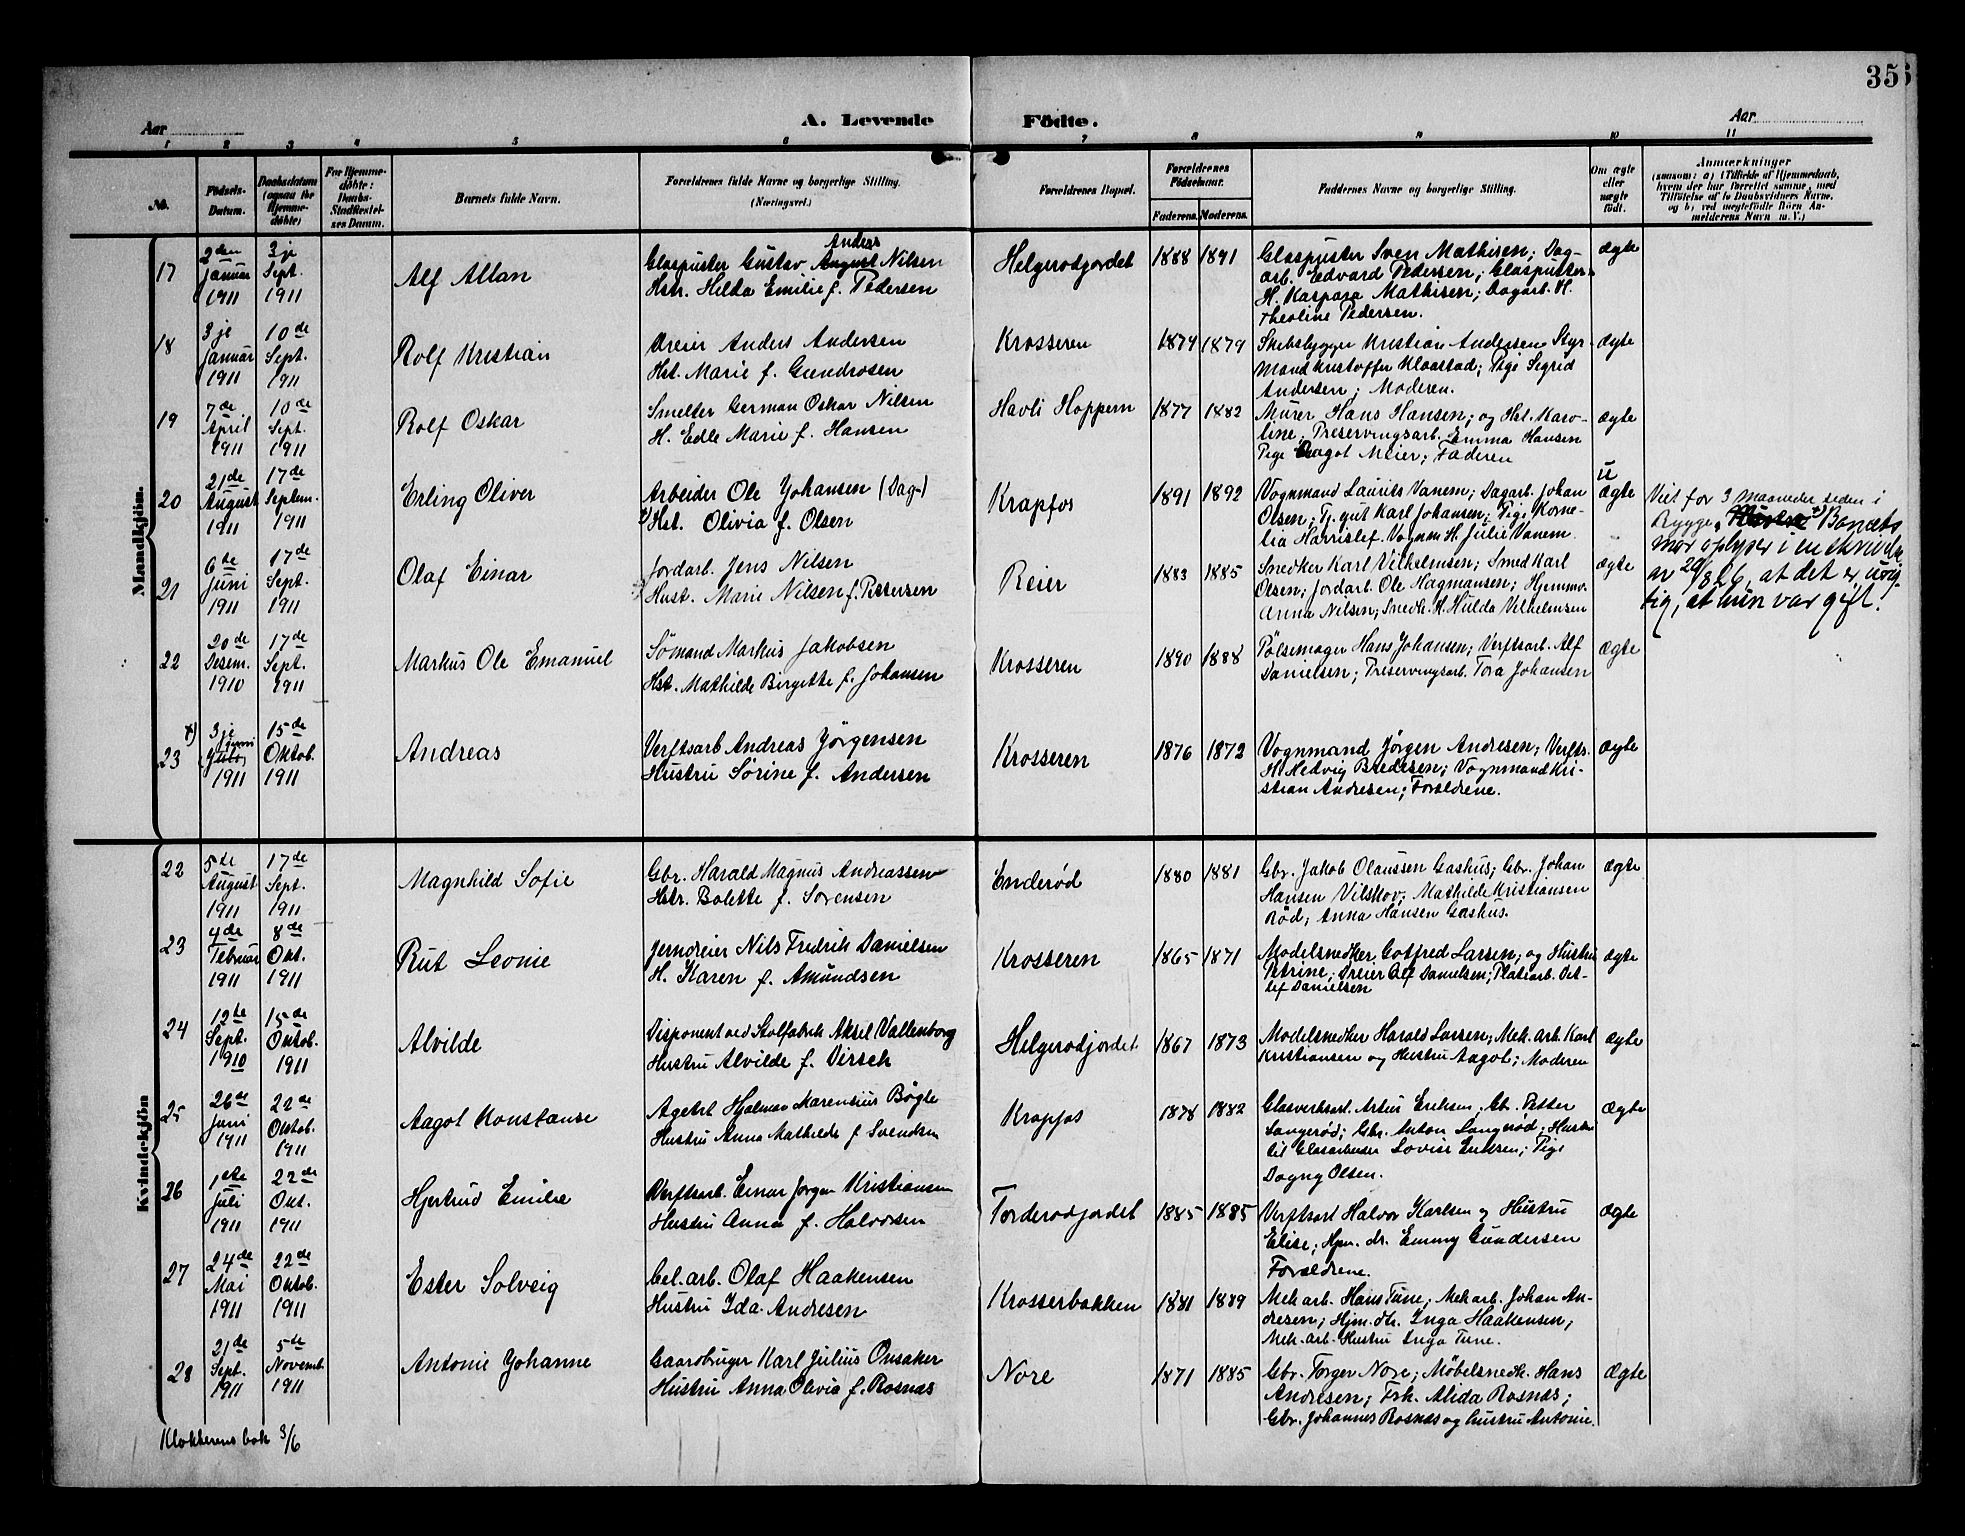 356
Aar
A. Levende
Fødte.
Aar
1 2 3 4 5 6 7 8 9 10 11
No.
Fødsels-
Datum.
Daabsdatum
(ogsaa for
Hjemme-
døbte)
For Hjemme-
døbte:
Daabs-
Stadfæstel-
ses Datum.
Barnets fulde Navn.
Forældrenes fulde Navne og borgerlige Stilling.
(Næringsvei.)
Forældrenes Bopæl.
Forældrenes
Fødselsaar.
Faderens. Moderens.
Faddernes Navne og borgerlige Stilling.
Om ægte
eller
uægte
født.
Anmærkninger
(saasom: a) i Tilfælde af Hjemmedaab,
hvem der har forrettet samme, med
Tilføielse af to Daabsvidners Navne,
og b) ved uægtefødte Børn An-
melderens Navn m. V.)
Mandkjön.
17
2den
Januar
1911
3je
Sept.
1911
Alf Allan
Glaspuster Gustav Anders August Nilsen
Hstr. Hilda Emilie f. Pedersen
Helgerødjordet
1888 1891
Glaspuster Sven Mathisen; Dag-
arb. Edvard Pedersen; Glaspuster
H. Kaspara Mathisen; Dagarb. H.
Theoline Pedersen.
ægte
18
3je
Januar
1911
10de
Sept.
1911
Rolf Kristian
Dreier Anders Andersen
Hst. Marie f. Gundrosen
Krosseren
1874 1879
Skibsbygger Kristian Andersen Styr
mand Kristoffer Klaastad; Pige Sigrid
Andersen; Moderen.
ægte
19
7de
April
1911
10de
Sept.
1911
Rolf Oskar
Smelter German Oskar Nilsen
H. Edle Marie f. Hansen
Havli Hoppern
1877 1882
Murer Hans Hansen; og Hst. Karo-
line; Preservingsarb. Emma Hansen
Pige Dagot Meier; Faderen
ægte
20
21de
August
1911
17de
Septem.
1911
Erling Oliver
Arbeider Ole Johansen (Dag-)
Hst. Olivia f. Olsen
Krapfos
1891 1892
Vognmand Laurits Vanem; Dagarb. Johan
Olsen; Tj. gut Karl Johansen; Pige Korne-
lia Harrislef. Vognm H. Julie Vanem
u
ægte
Viet for 3 maaneder siden i
Rygge. Barnets
mor oplyser i en skrivelse
av 20/8 26, at det er urig-
tig, at hun var gift!
21
6te
Juni
1911
17de
Sept.
1911
Olaf Einar
Jordarb. Jens Nilsen
Hust. Marie Nilsen f. Petersen
Reier
1883 1885
Snedker Karl Vilhelmsen; Smed Karl
Olsen; Jordarb Ole Hagmansen; Hjemmv.
Anna Nilsen; Snedk. H. Hulda Vilhelmsen
ægte
22
20de
Desem.
1910
17de
Sept.
1911
Markus Ole Emanuel
Sømand Markus Jakobsen
Hst. Mathilde Birgitte f. Johansen
Krosseren
1890 1888
Pølsemager Hans Johansen; Verftsarb. Alf
Danielsen; Preservingsarb. Tora Johansen
ægte
23
x)
3je
Juni
1911
15de
Oktob.
1911
Andreas
Verftsarb Andreas Jörgensen
Hustru Sörine f. Andersen
Krosseren
1876 1872
Vognmand Jørgen Andresen; Verfts.
H. Hedvig Bredesen; Vognmand Kri-
stian Andresen; Forældrene.
ægte
Kvindekjön
22
5de
August
1911
17de
Sept.
1911
Magnhild Sofie
Gbr. Harald Magnus Andreassen
Hstr. Bolette f. Sørensen
Enderød
1880 1881
Gbr. Jakob Olaussen Gashus; Gbr. Johan
Hansen Vilskov; Mathilde Kristiansen
Rød; Anna Hansen Gashus.
ægte
23
4de
Februar
1911
8de
Okt.
1911
Rut Leonie
Jerndreier Nils Fredrik Danielsen
H. Karen f. Amundsen
Krosseren
1865 1871
Modelsnedker. Gotfred Larsen; og Hustru
Petrine; Dreier Alf Danielsen; Pladsarb. Det-
lef Danielsen
ægte
24
12te
Sept.
1910
15de
Oktob.
1911
Alvilde
Disponent ved Stolfabrik Aksel Vallenborg
Hustru Alvilde f. Dirsch
Helgerødjordet
1867 1873
Modelsnedker Harald Larsen; Mek. Arb. Karl
Kristiansen og Hustru Aagot; Moderen
ægte
25
26de
Juni
1911
22de
Oktob.
1911
Aagot Konstanse
Agent Hjalmar Marensius Bögle
Hustru Anna Mathilde f Svendsen
Krapfos
1878 1882
Glasverksarb. Artur Eriksen; Gb. Petter
Langerød; Gbr. Anton Langerød; Hustru
til Glasarbeider Lovise Eriksen; Pige
Dagny Olsen.
Ægte
26
1ste
Juli
1911
22de
Okt.
1911
Hjertrud Emilie
Verftsarb. Einar Jørgen Kristiansen
Hustru Anna f. Halvorsen
Torderødjordet
1885 1885
Verftsarb Halvor Karlsen og Hustru
Elise; Hjm. dr. Emmy Gundersen
Forældrene.
Ægte
27
24de
Mai
1911
22de
Oktob.
1911
Ester Solveig
Cel. arb. Olaf Haakensen
Hustru Ida Andresen
Krosserbakken
1881 1889
Mek arb. Hans Tune; Mek arb. Johan An-
dresen; Hjm. dtr. Inga Haakensen;
Mek. arb. Hustru Inga Tune.
28
21de
Sept.
1911
5te
Novemb.
1911
Antonie Johanne
Gaardbruger Karl Julius Onsaker
Hustru Anna Olivia f. Rosnæs
Nore
1871 1885
Gbr. Torger Nore; Møbelsnedk. Hans
Andresen; Frk. Alida Rosnæs;
Gbr. Johannes Rosnæs og hustru Antonie.
Ægte
Klokkerens bok 3/6